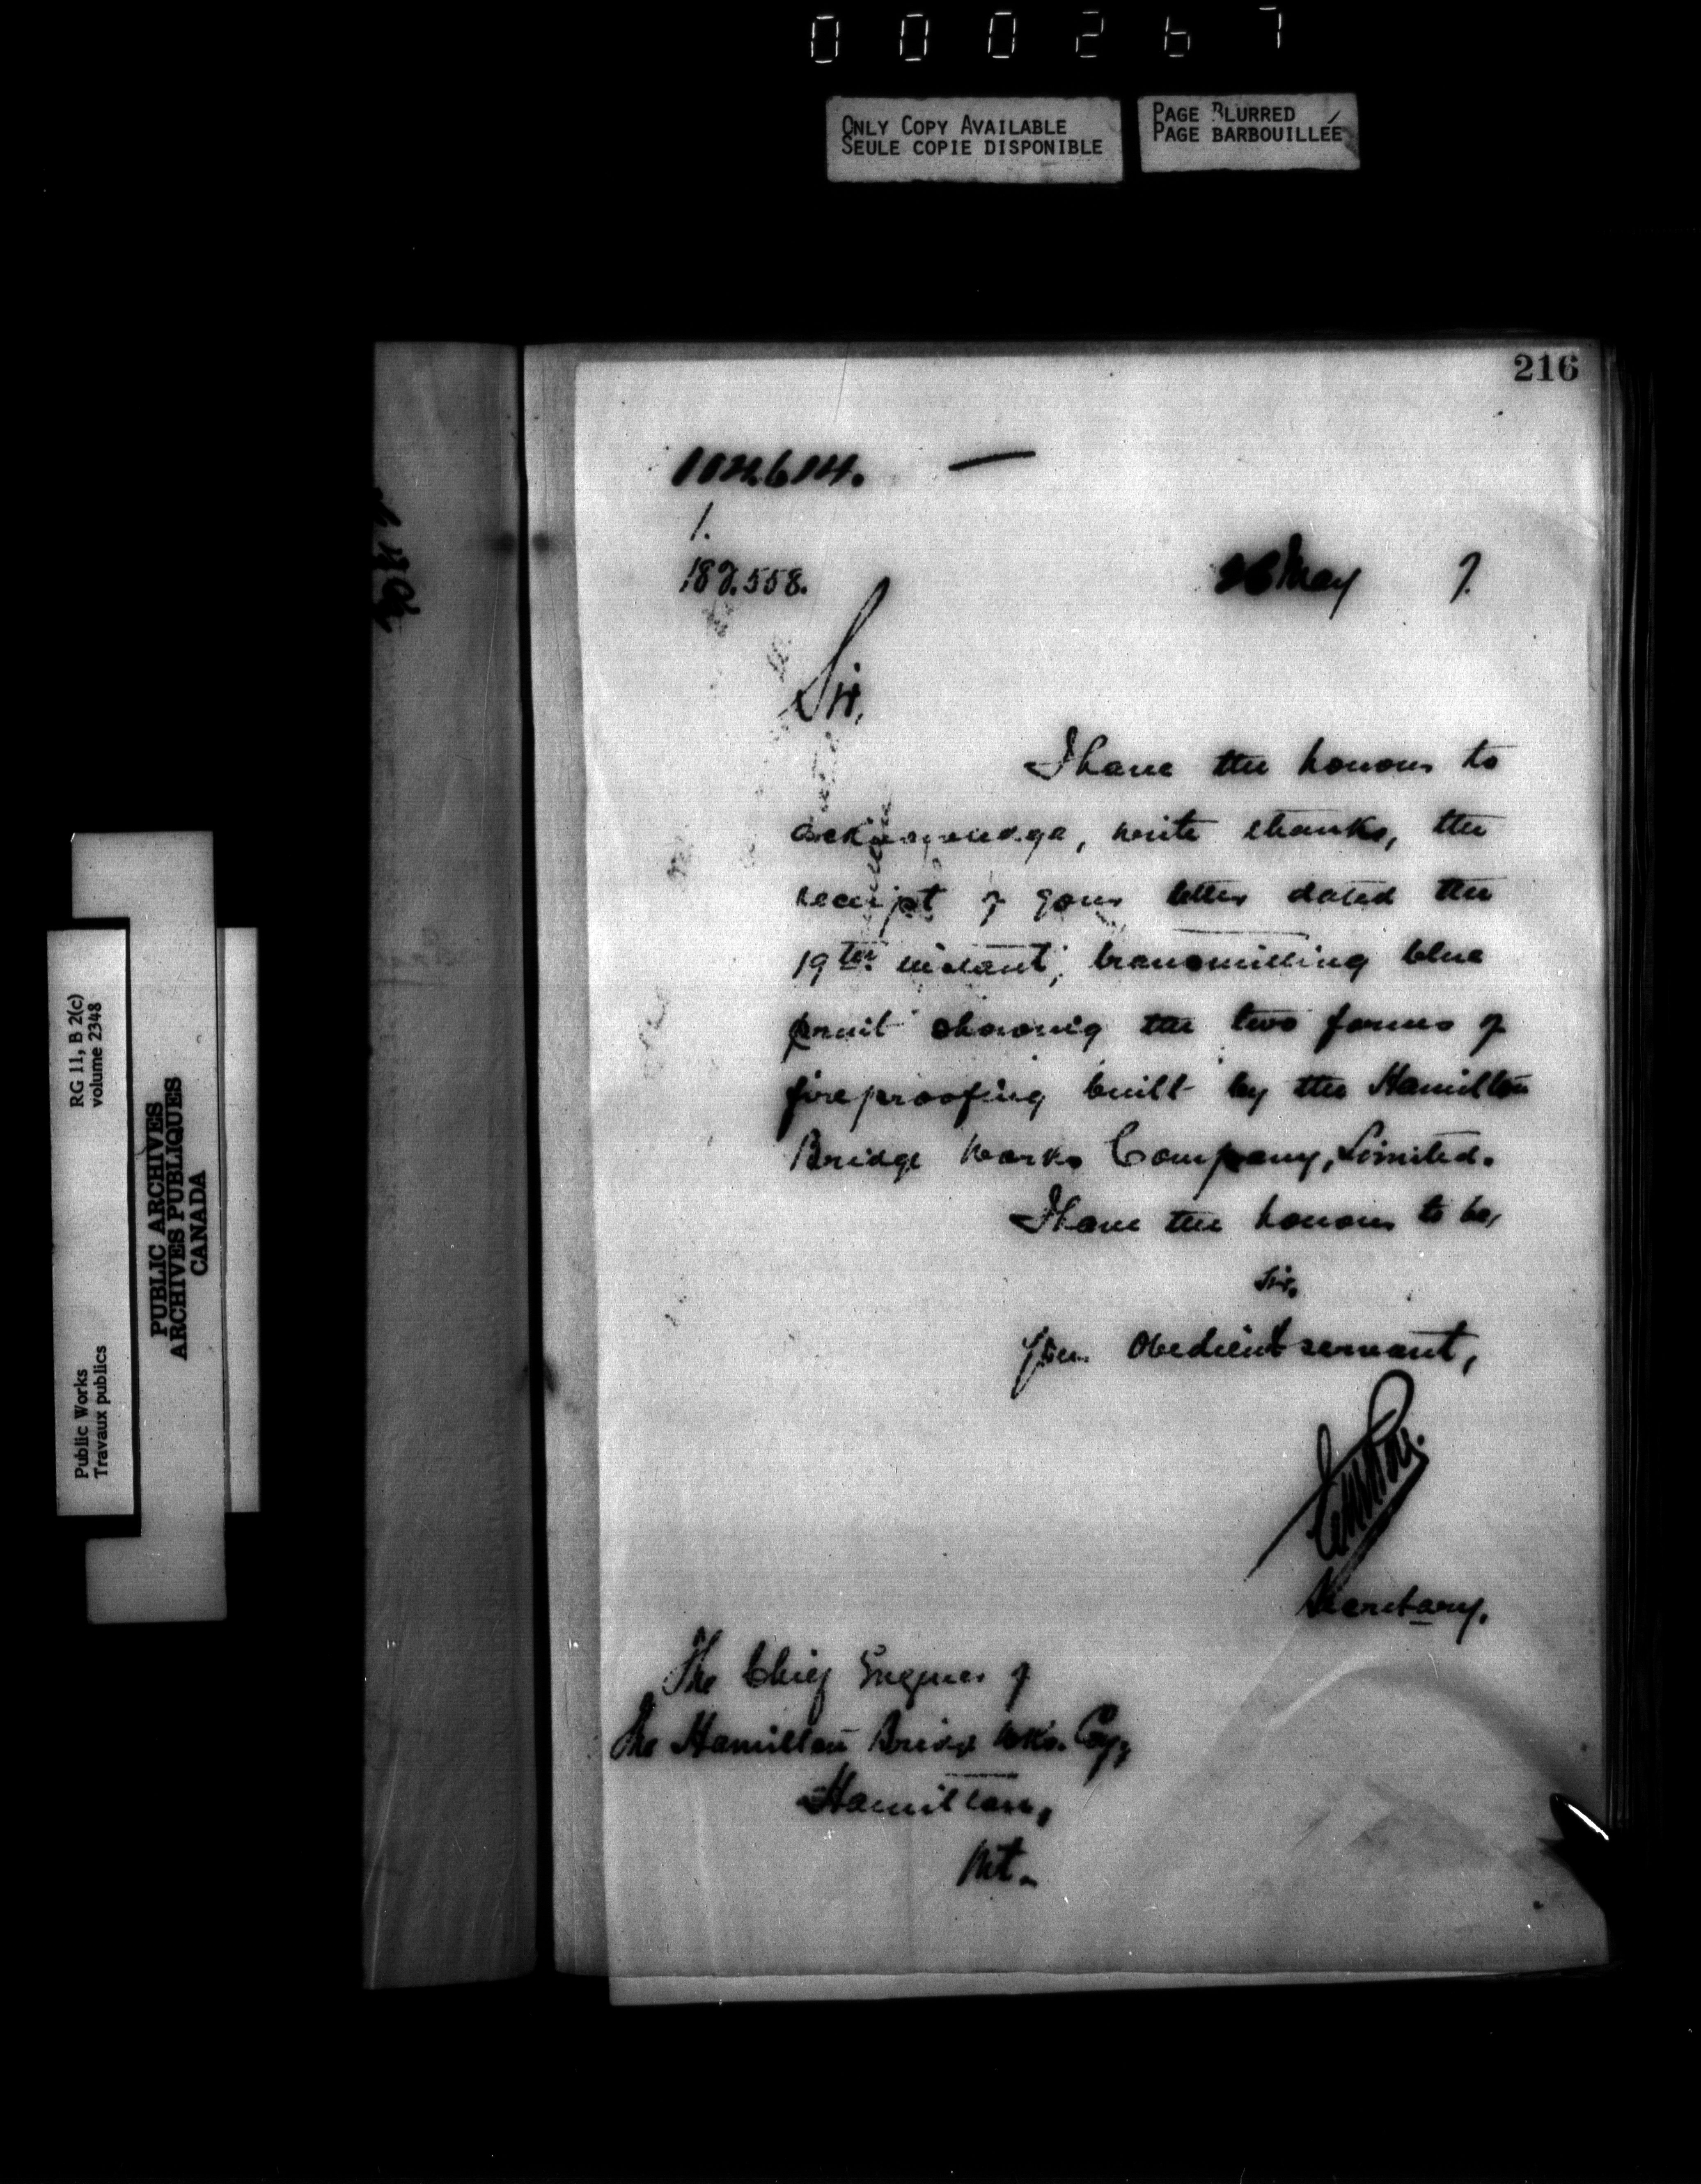 000267
ONLY COPY AVAILABLE
SEULE COPIE DISPONIBLE
PAGE BLURRED
PAGE BARBOUILLÉE
216
1.
26 May 7.
Sir,
I have the honour to
acknowledge, with thanks, the
receipt of your letter dated the
19th instant, transmitting blue
print showing the two forms of
fireproofing built by the Hamilton
Bridge Works Company, Limited.
I have the honour to be,
Sir,
Your Obedient servant,
Secretary.
The Chief Engineer of
The Hamilton Bridge Wks. Coy,
Hamilton,
Ont.
RG 11, B 2(c)
volume 2348
Public Works
Travaux publics
PUBLIC ARCHIVES
ARCHIVES PUBLIQUES
CANADA